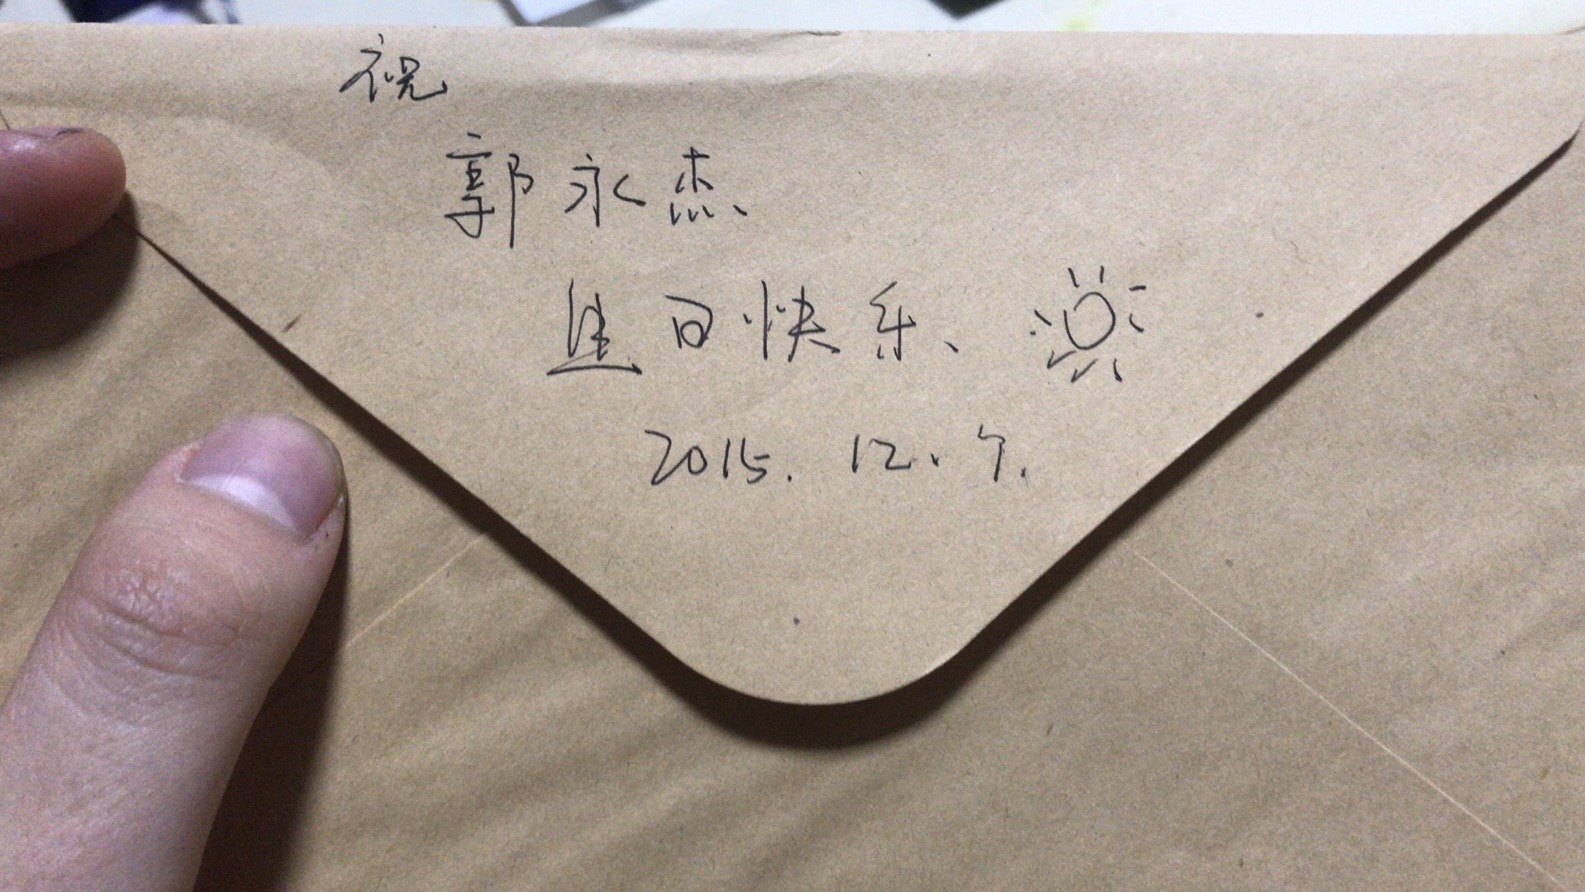 祝
郭永杰
生日快乐、
2015. 12. 7.